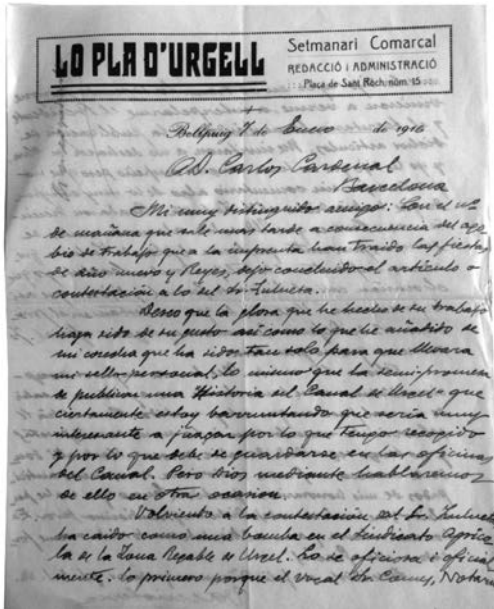 LO PLA D'URGELL
Setmanari Comarcal
REDACCIÓ i ADMINISTRACIÓ
Plaça de Sant Roch, núm. 15
Bellpuig 7 de Enero de 1916
D. Carlos Cardenal
Barcelona
Mi muy distinguido amigo: Con el nº
de mañana que sale mas tarde a consecuencia del ago
bio de trabajo que a la imprenta han traido las fiestas
de año nuevo y Reyes, dejo concluido el artículo o
contestación a lo del Sr. Zulueta.
Deseo que la glosa que he hecho de su trabajo
haya sido de su gusto asi como lo que he añadido de
mi cosecha que ha sido tan solo para que llevara
mi sello personal, lo mismo que la semi-promesa
de publicar una Historia del Canal de Urgel que
ciertamente estoy barruntando que sería muy
interesante a juzgar por lo que tengo recogido
y por lo que debe de guardarse en las oficinas
del Canal. Pero Dios mediante hablaremos
de ello en otra ocasion.
Volviendo a la contestación del Sr. Zulueta
ha caido como una bomba en el Sindicato Agríco
la de la Zona Regable de Urgel. Lo se oficiosa i oficial
mente. Lo primero porque el vocal Sr. Notario